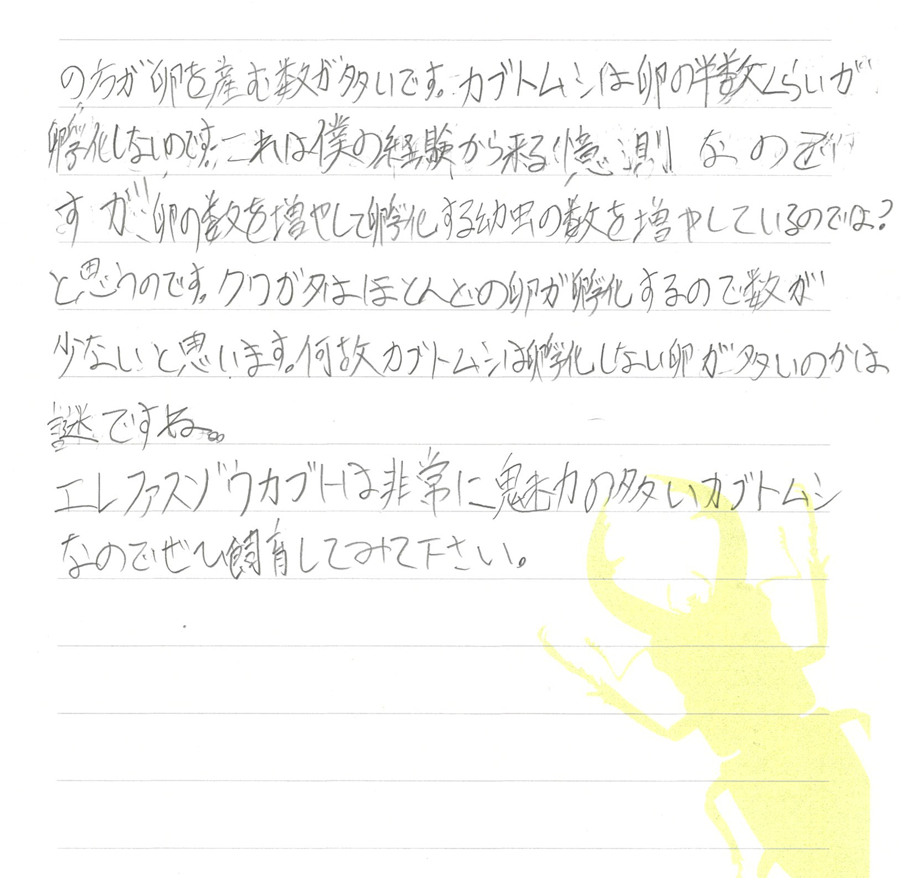 の方が卵を産む数が多いです。カブトムシは卵の半数くらいが
孵化しないのです。これは僕の経験から来る憶測なので
すが、卵の数を増やして孵化する幼虫の数を増やしているのでは?
と思うのです。クワガタはほとんどの卵が孵化するので数が
少ないと思います。何故カブトムシは孵化しない卵が多いのかは
謎ですね。
エレファスゾウカブトは非常に魅力の多いカブトムシ
なのでぜひ飼育してみて下さい。